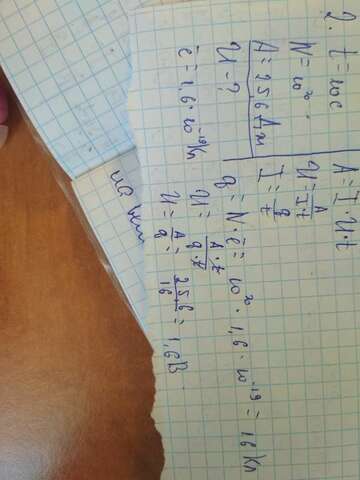 2. t = 10 c
N = 10²⁰
A = 256 Дж
U - ?
e̅ = 1,6 · 10⁻¹⁹ Кл
A = I · U · t
U = A/It
I = q/t
q = N · e̅ = 10²⁰ · 1,6 · 10⁻¹⁹ = 16 Кл
U = A · t/q · t
U = A/q = 256/16 = 1,6 В
на